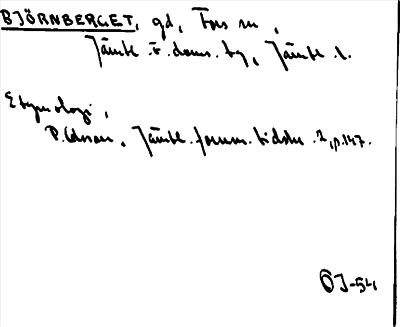 BJÖRNBERGET, gd, Fors sn,
Jämtl. v. doms. tg, Jämtl. l.
Etymologi,
P. Olsson, Jämtl. fornm. tidskr. 2, p. 147.
ÖJ-54